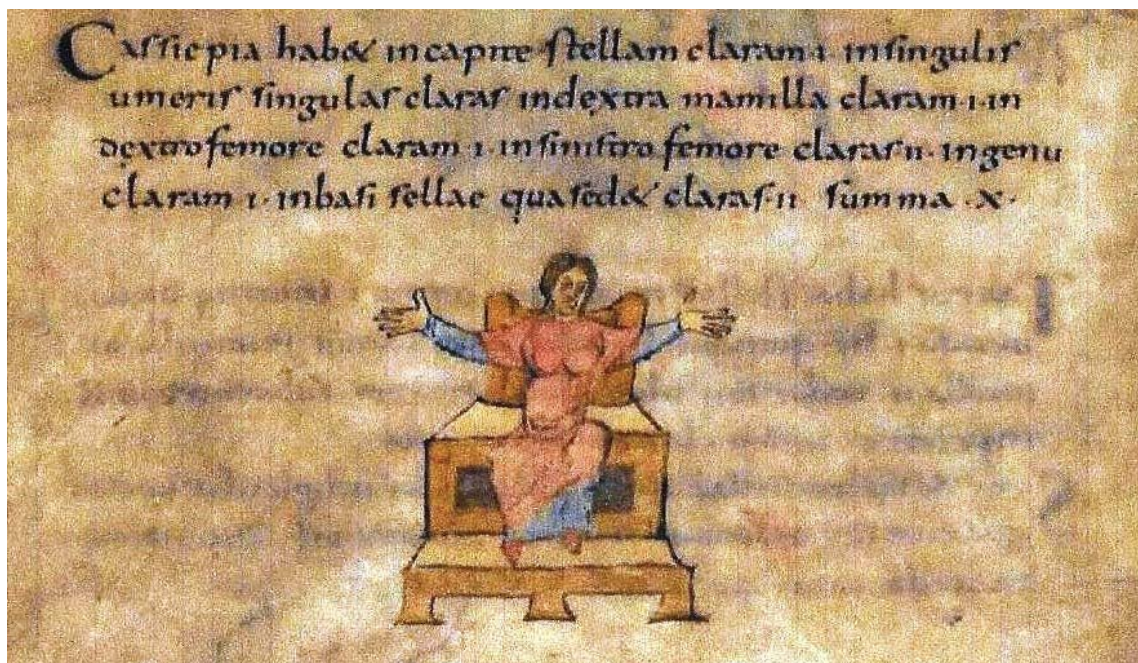 Cassiepia hab& incapite stellam claram ı insingulis
umeris singulas claras indęxtra mamilla claram·ı·in
dęxtro femore claram ı·insinistro femore claras ıı·ingenu
claram ı·inbasi sellae quased& claras·ıı summa·x·